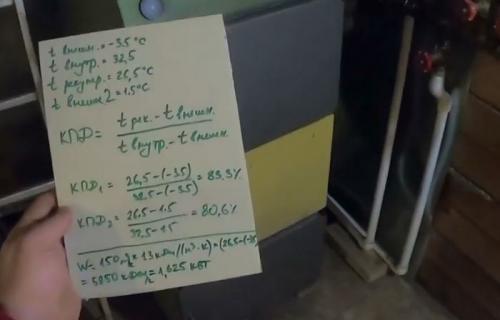 t внешн. = -3.5°C
t внутр. = 32,5
t рекупер. = 26,5°C
t внешн 2 = 1.5°C
КПД = t рек. - t внешн. / t внутр. - t внешн.
КПД₁ = 26,5-(-3.5) / 32.5-(-3.5) = 83.3%
КПД₂ = 26,5-1.5 / 32,5-1.5 = 80,6%
W = 150 м³/ч * 1.3 кДж/(м³·К) * (26,5-(-3.5)
= 5850 кДж/ч = 1,625 кВт